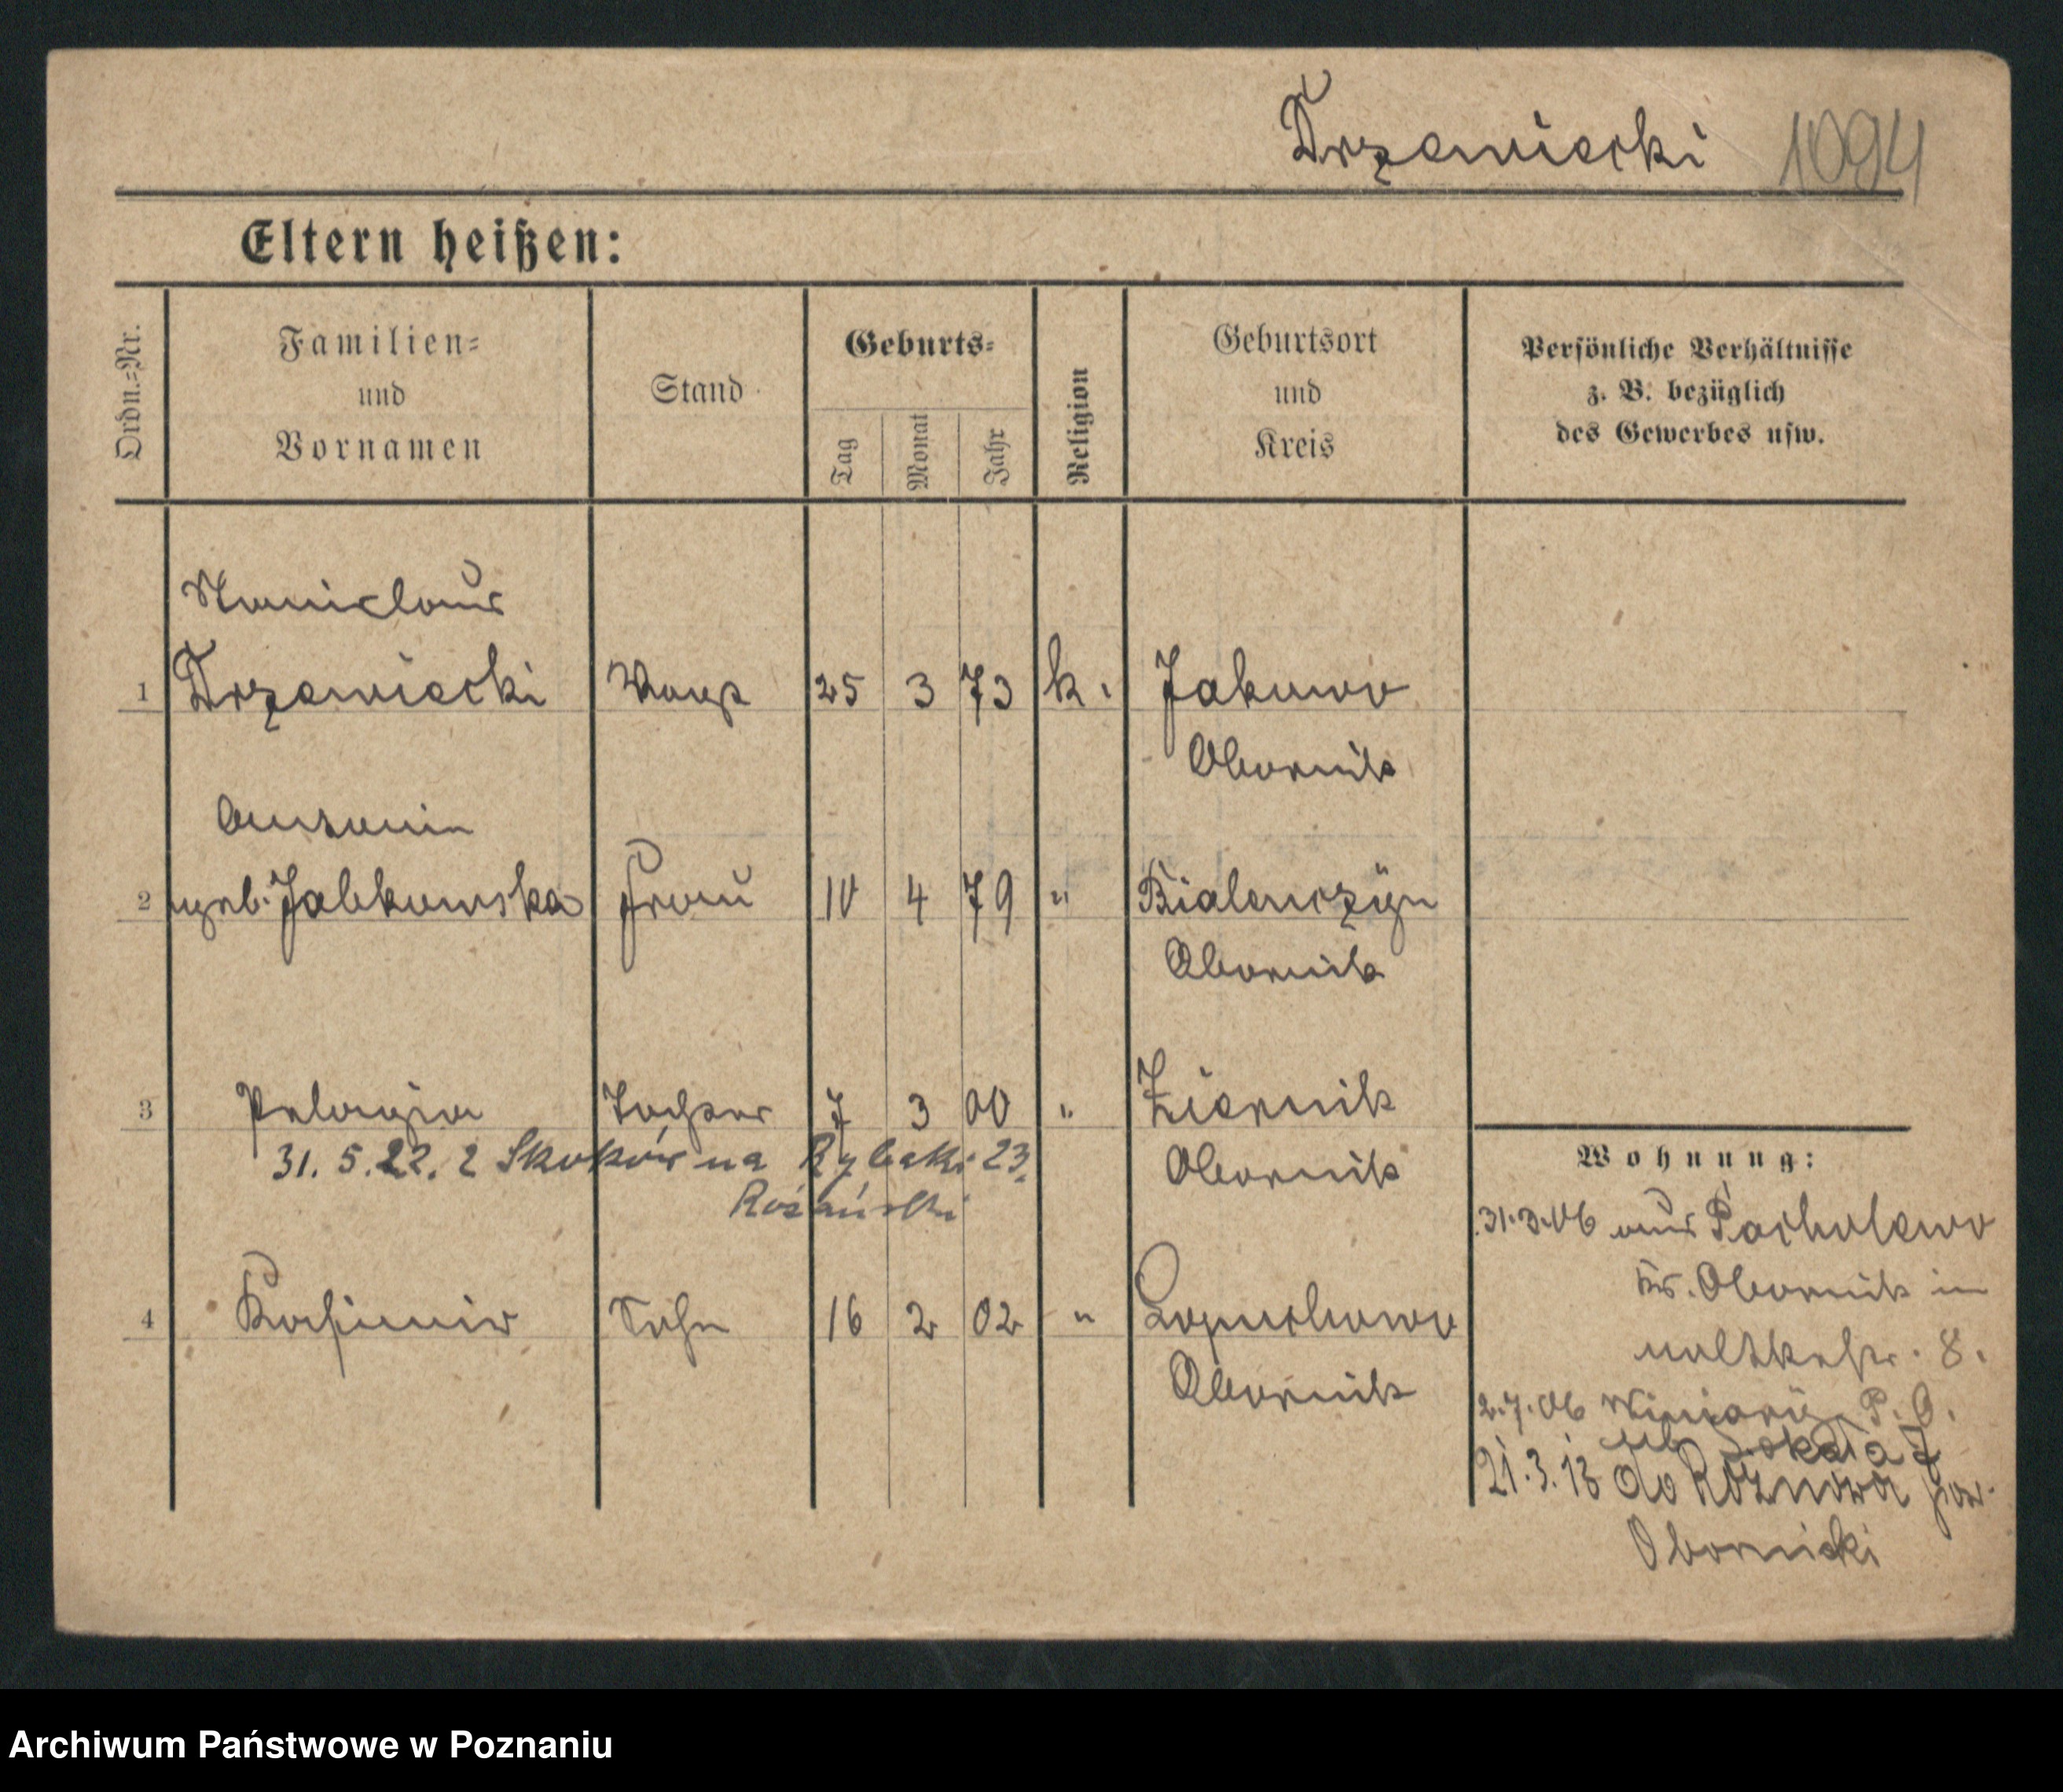 Drzewiecki 1094
Eltern heißen:
Ordn.-Nr.
Familien-
und
Vornamen
Stand
Geburts-
Tag
Monat
Jahr
Religion
Geburtsort
und
Kreis
Persönliche Verhältnisse
z. B. bezüglich
des Gewerbes usw.
Stanislaus
1 Drzewiecki 25 3 73 k. Jakuwo
Obornik
Antonie
2 geb. Jabkowska Frau 10 4 79 " Bialenczyn
Obornik
3 Pelagia Tochter 7 3 00 " Ziernik
31. 5. 22. z Skoków na Rybaki 23. Obornik
Różański
4 Kasimir Sohn 16 2 02 " Lopuchowo
Obornik
Wohnung:
31.3.06 aus Pacholewo
Kr. Obornik in
Moltkestr. 8.
2.7.06 Winiary P. O.
Sokoła 7
21.3.13 do Rożnowa pow.
Obornicki
Archiwum Państwowe w Poznaniu